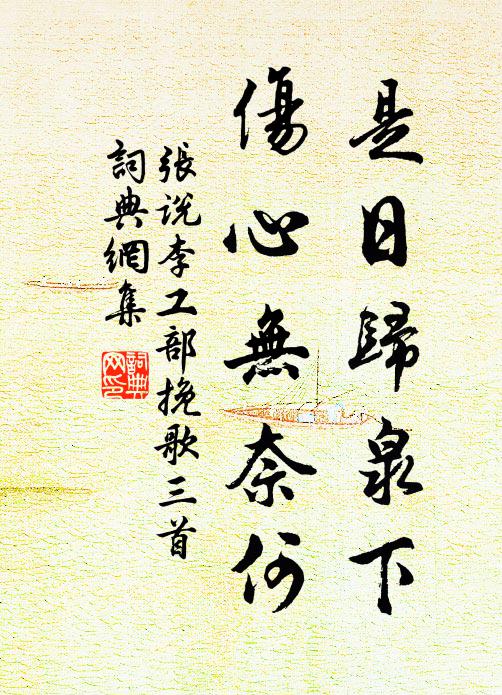 是日歸泉下
傷心無奈何
張説李工部挽歌三首
詞典網集
詞典
网印